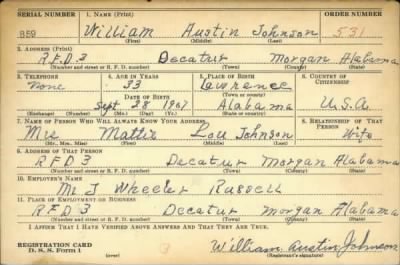 SERIAL NUMBER 1. NAME (Print) ORDER NUMBER
859 William Austin Johnson 531
(First) (Middle) (Last)
2. ADDRESS (Print)
R.F.D 3 Decatur Morgan Alabama
(Number and street or R. F. D. number) (Town) (County) (State)
3. TELEPHONE 4. AGE IN YEARS 5. PLACE OF BIRTH 6. COUNTRY OF CITIZENSHIP
None 33 Lawrence
DATE OF BIRTH
Sept 28 1907 Alabama U.S.A
(Exchange) (Number) (Mo.) (Day) (Yr.) (State or country)
7. NAME OF PERSON WHO WILL ALWAYS KNOW YOUR ADDRESS 8. RELATIONSHIP OF THAT PERSON
Mrs Mattie Lou Johnson Wife
(Mr., Mrs., Miss) (First) (Middle) (Last)
9. ADDRESS OF THAT PERSON
RFD 3 Decatur Morgan Alabama
(Number and street or R. F. D. number) (Town) (County) (State)
10. EMPLOYER'S NAME
Mr J Wheeler Russell
11. PLACE OF EMPLOYMENT OR BUSINESS
R.F.D 3 Decatur Morgan Alabama
(Number and street or R. F. D. number) (Town) (County) (State)
I AFFIRM THAT I HAVE VERIFIED ABOVE ANSWERS AND THAT THEY ARE TRUE.
REGISTRATION CARD William Austin Johnson
D. S. S. Form 1 (over) (Registrant's signature)